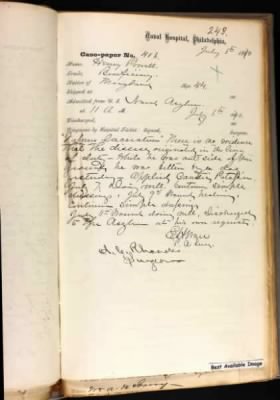 248.
Naval Hospital, Philadelphia,
July 5th 1890
Case-paper No. 406
Name: Henry
Grade, Beneficiary
Native of Maryland Age 54
Shipped at
Admitted from U. S. Naval Asylum
at 11 A M July 5th 1890
Discharged,
Diagnosis by Hospital Ticket. Signed, Surgeon.
Vulnus There is no evidence
that the disease originated in the line
of duty - While he was outside of the
grounds he was bitten by a dog
Applied
July 7. Doing well. Continue simple
dressing. July 9th Wound healing,
Continue simple dressing
July Wound doing well, Discharged
to the Asylum at his own request
Surgeon
Best Available Image